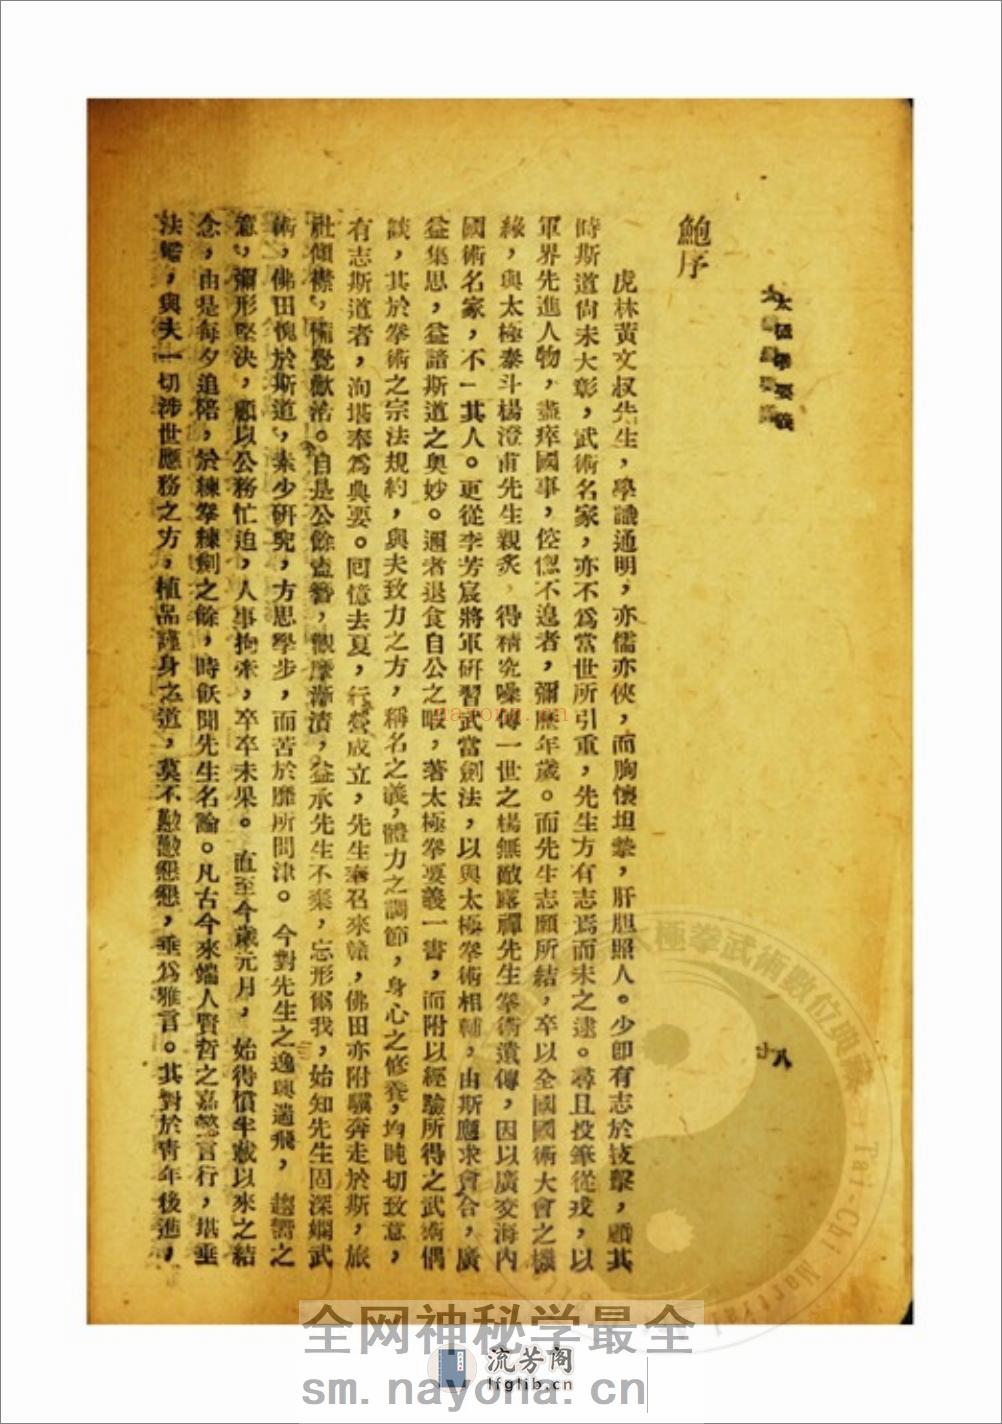 太極拳要義
十八
鮑序
虎林黃文叔先生，學識通明，亦儒亦俠，而胸懷坦摯，肝胆照人。少即有志於技擊，顧其
時斯道尙未大彰，武術名家，亦不爲當世所引重，先生方有志焉而未之逮。尋且投筆從戎，以
軍界先進人物，盡瘁國事，倥傯不遑者，彌歷年歲。而先生志願所結，卒以全國國術大會之機
緣，與太極泰斗楊澄甫先生親炙，得精究噪傳一世之楊無敵露禪先生拳術遺傳，因以廣交海內
國術名家，不一其人。更從李芳宸將軍研習武當劍法，以與太極拳術相輔，由斯應求會合，廣
益集思，益諳斯道之奧妙。邇者退食自公之暇，著太極拳要義一書，而附以經驗所得之武術偶
談，其於拳術之宗法規約，與夫致力之方，稱名之義，體力之調節，身心之修養，均肫切致意，
有志斯道者，洵堪奉爲典要。囘憶去夏，行營成立，先生奉召來贛，佛田亦附驥奔走於斯，旅
社傾襟，備覺歡洽。自是公餘盍簪，觀摩漸漬，益承先生不棄，忘形爾我，始知先生固深嫻武
術，佛田愧於斯道，素少硏究，方思學步，而苦於靡所問津。今對先生之逸興遄飛，趨嚮之
意，彌形堅決，顧以公務忙迫，人事拘牽，卒卒未果。直至今歲元月，始得償年載以來之結
念，由是每夕追陪，於練拳練劍之餘，時飫聞先生名論。凡古今來端人賢哲之嘉懿言行，堪垂
法，與夫一切涉世應務之方，植品謹身之道，莫不懃懃懇懇，垂爲雅言。其對於靑年後進，
太極拳武術數位典藏
Tai-Chi Martial
nayona.cn
全网神秘学最全
流芳阁
lfglib.cn
sm.nayona.cn